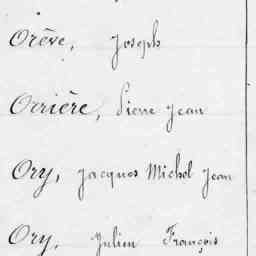 Orêve, Joseph
Orrière, Pierre Jean
Ory, Jacques Michel Jean
Ory, Julien François